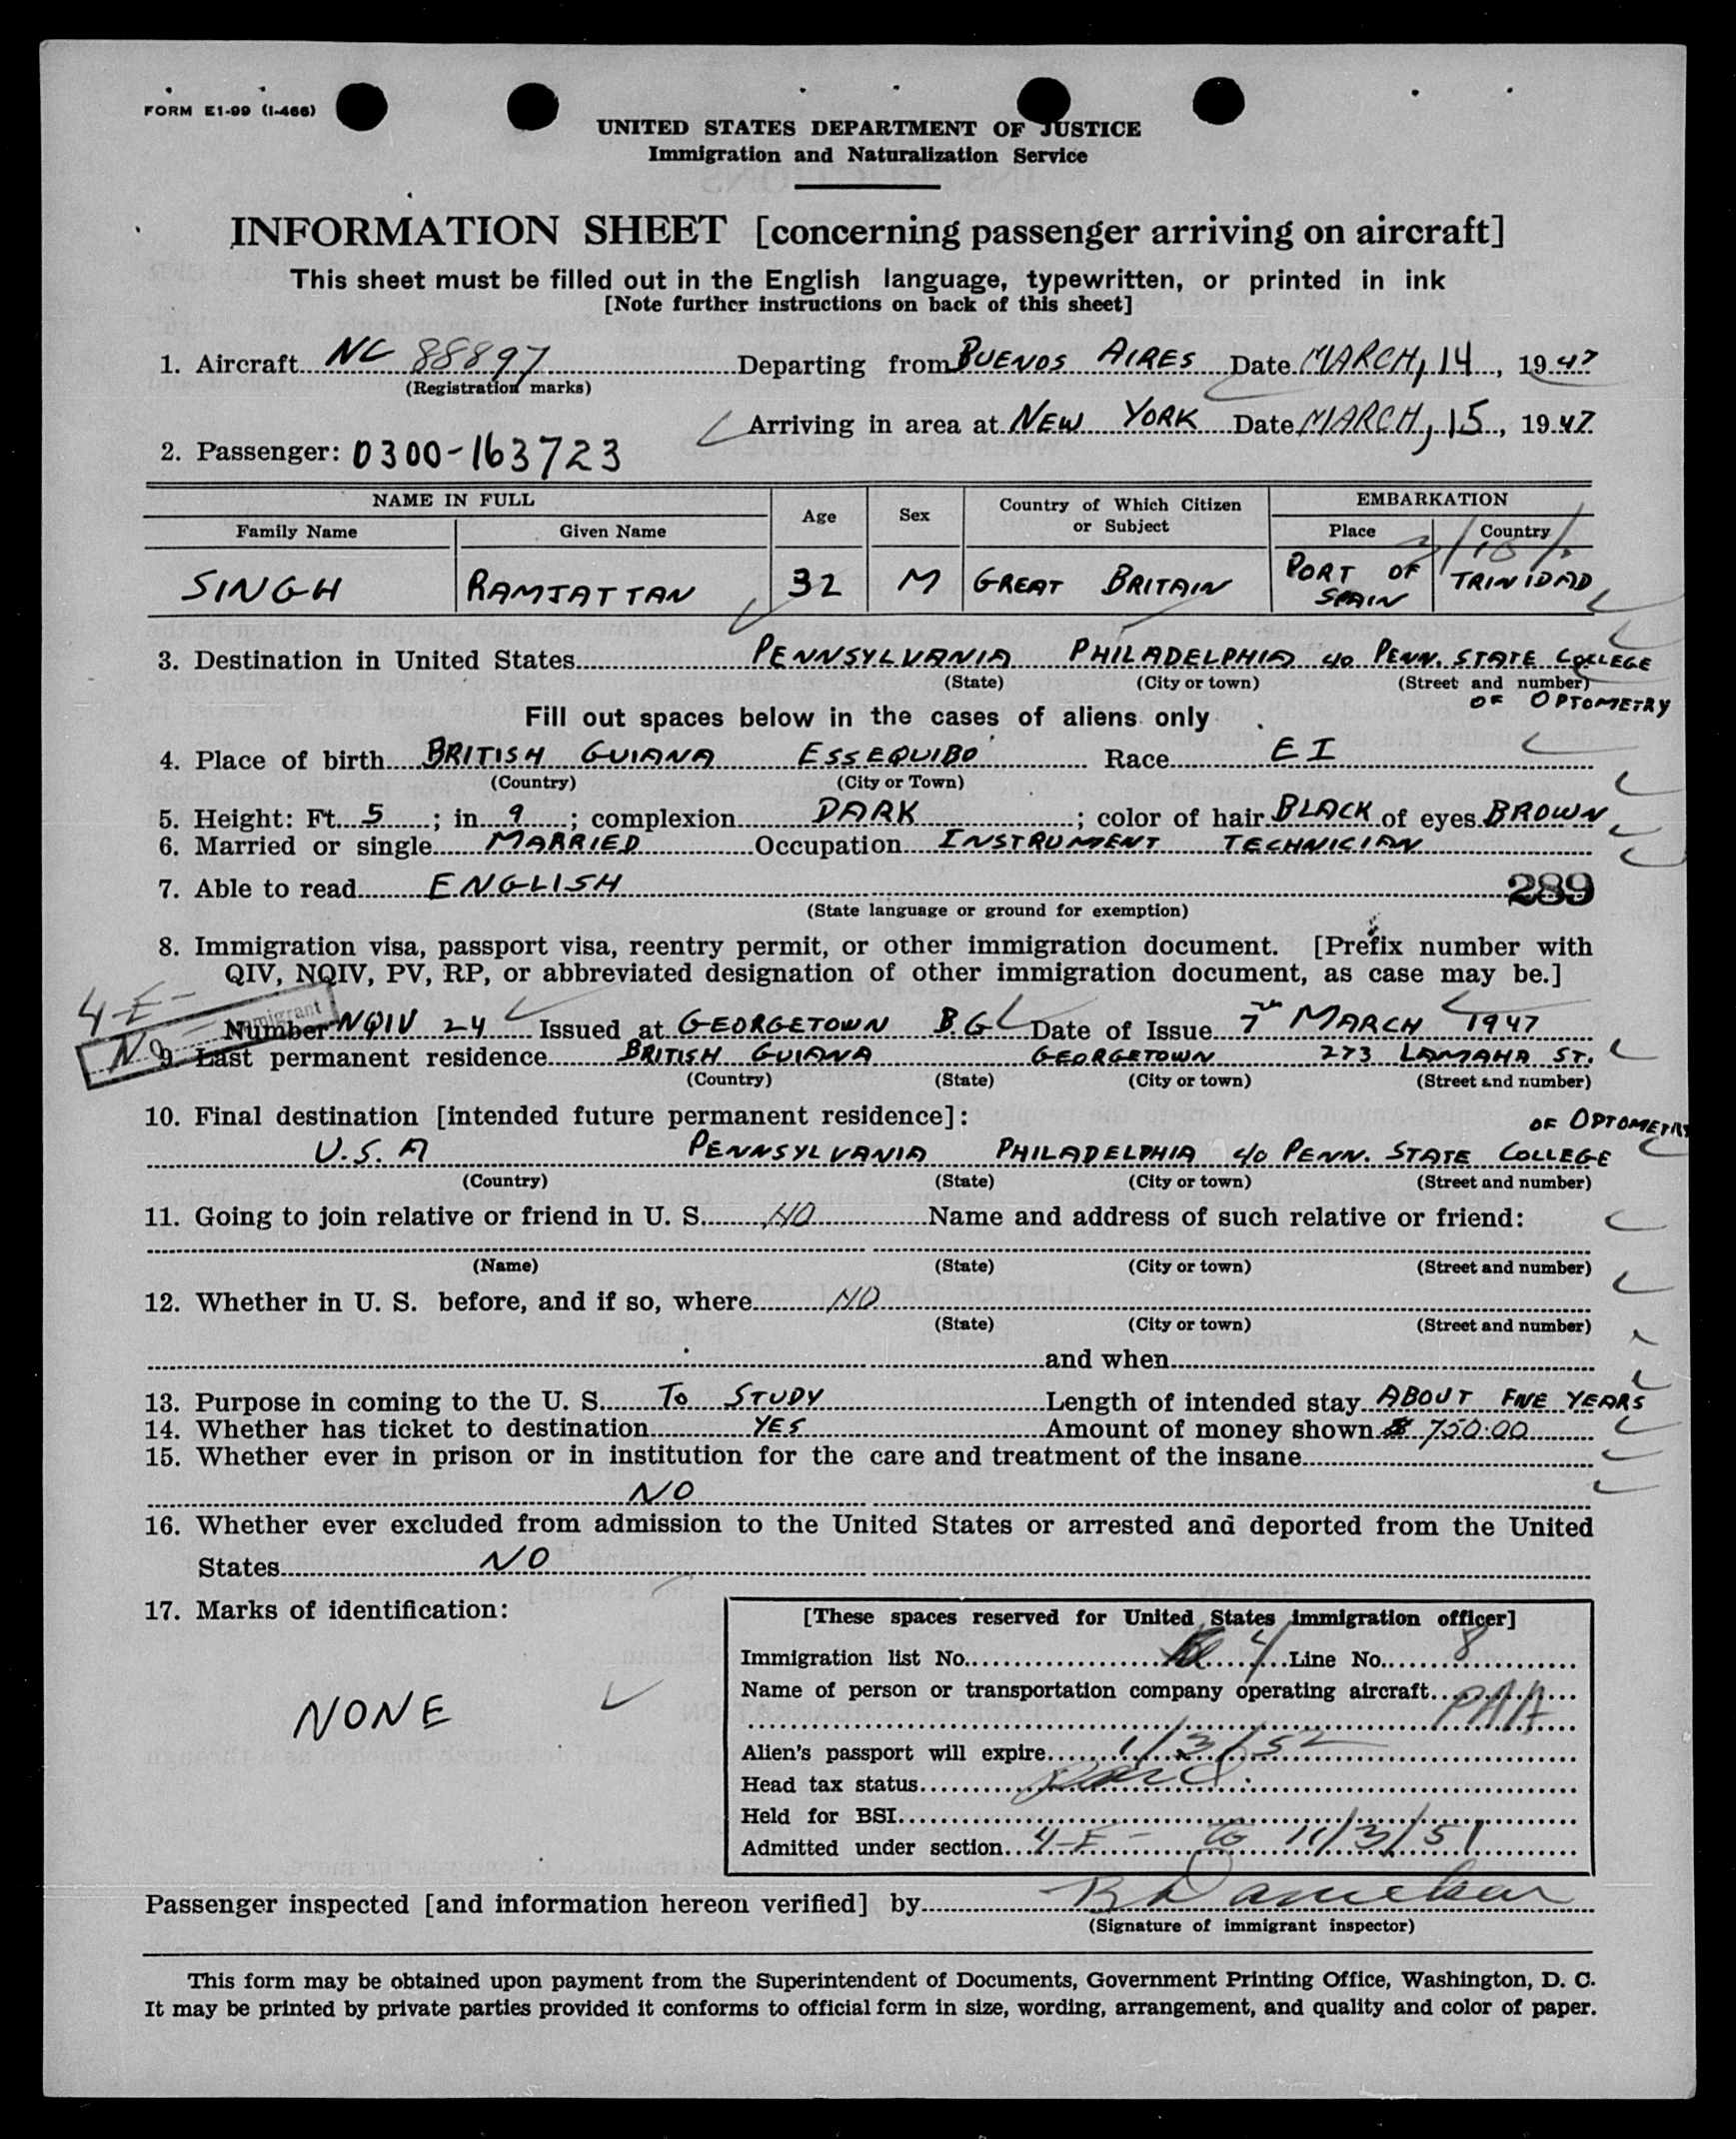 FORM E1-99 (I-466)
UNITED STATES DEPARTMENT OF JUSTICE
Immigration and Naturalization Service
INFORMATION SHEET [concerning passenger arriving on aircraft]
This sheet must be filled out in the English language, typewritten, or printed in ink
[Note further instructions on back of this sheet]
1. Aircraft NC 88897 Departing from BUENOS AIRES Date MARCH, 14, 1947
(Registration marks)
Arriving in area at NEW YORK Date MARCH, 15, 1947
2. Passenger: 0300-163723
NAME IN FULL Age Sex Country of Which Citizen or Subject EMBARKATION
Family Name Given Name Place Country
SINGH RAMJATTAN 32 M GREAT BRITAIN PORT OF SPAIN TRINIDAD
3. Destination in United States PENNSYLVANIA PHILADELPHIA c/o PENN. STATE COLLEGE
(State) (City or town) (Street and number)
OF OPTOMETRY
Fill out spaces below in the cases of aliens only
4. Place of birth BRITISH GUIANA ESSEQUIBO Race EI
(Country) (City or Town)
5. Height: Ft. 5; in 9; complexion DARK; color of hair BLACK of eyes BROWN
6. Married or single MARRIED Occupation INSTRUMENT TECHNICIAN
7. Able to read ENGLISH 289
(State language or ground for exemption)
8. Immigration visa, passport visa, reentry permit, or other immigration document. [Prefix number with
QIV, NQIV, PV, RP, or abbreviated designation of other immigration document, as case may be.]
4-E-
Number NQIV 24 Issued at GEORGETOWN B.G. Date of Issue 7TH MARCH 1947
9. Last permanent residence BRITISH GUIANA GEORGETOWN 273 LAMAHA ST.
(Country) (State) (City or town) (Street and number)
10. Final destination [intended future permanent residece]:
OF OPTOMETRY
U.S.A PENNSYLVANIA PHILADELPHIA c/o PENN. STATE COLLEGE
(Country) (State) (City or town) (Street and number)
11. Going to join relative or friend in U. S. NO Name and address of such relative or friend:
(Name) (State) (City or town) (Street and number)
12. Whether in U. S. before, and if so, where NO
(State) (City or town) (Street and number)
and when
13. Purpose in coming to the U. S. TO STUDY Length of intended stay ABOUT FIVE YEARS
14. Whether has ticket to destination YES Amount of money shown $ 750.00
15. Whether ever in prison or in institution for the care and treatment of the insane
NO
16. Whether ever excluded from admission to the United States or arrested and deported from the United
States NO
17. Marks of identification:
NONE
[These spaces reserved for United States immigration officer]
Immigration list No. 4 Line No. 8
Name of person or transportation company operating aircraft PAA
Alien's passport will expire 1/3/52
Head tax status Paid
Held for BSI
Admitted under section 4-E- to 11/3/51
Passenger inspected [and information hereon verified] by
(Signature of immigrant inspector)
This form may be obtained upon payment from the Superintendent of Documents, Government Printing Office, Washington, D. C.
It may be printed by private parties provided it conforms to official form in size, wording, arrangement, and quality and color of paper.